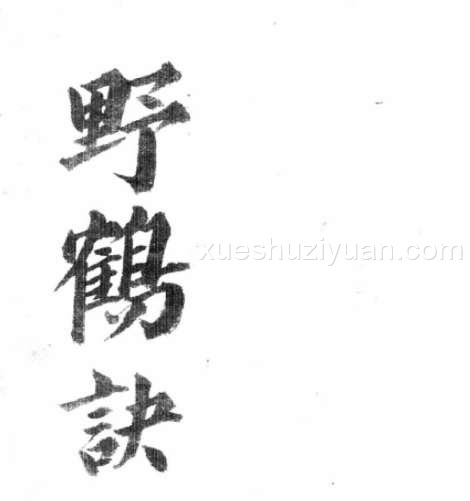 野鶴訣
xueshuziyuan.com